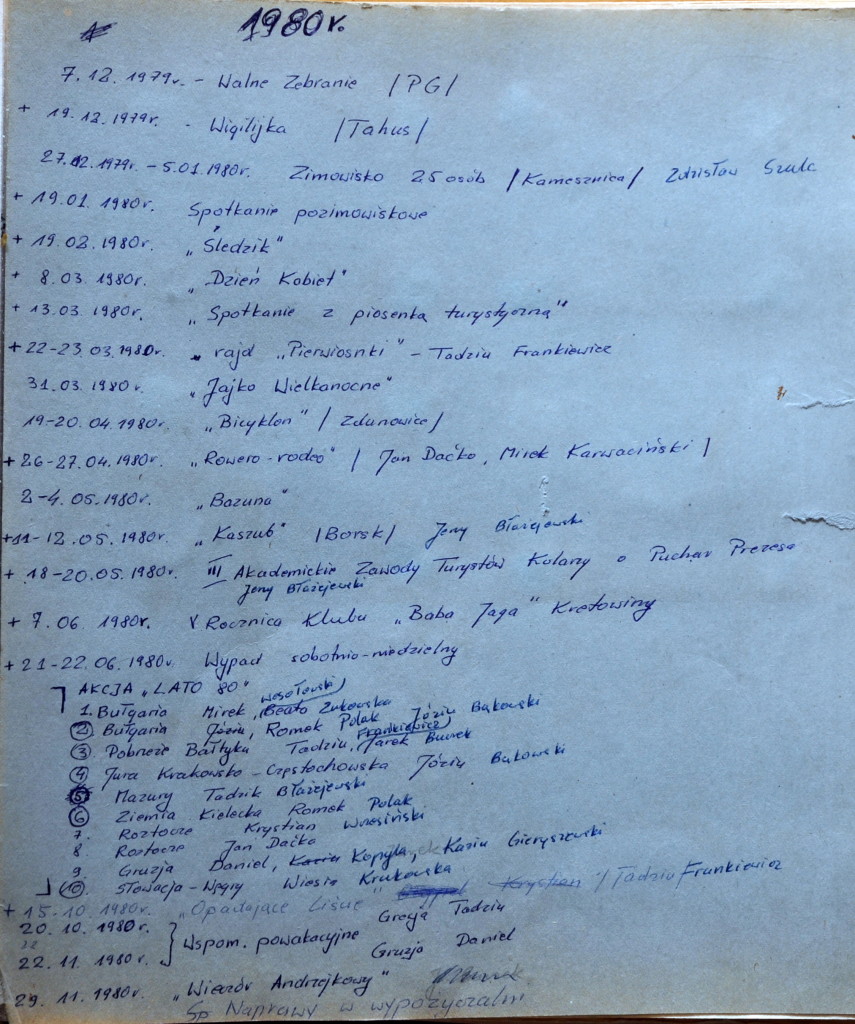 1980r.
7.12.1979r. - Walne Zebranie /PG/
+ 19.12.1979r. - Wigilijka /Tahus/
27.12.1979r. - 5.01.1980r. Zimowisko 25 osób /Kamesznica/ Zdzisław Szulc
+ 19.01.1980r. Spotkanie pozimowiskowe
+ 19.02.1980r. „Śledzik"
+ 8.03.1980r. „Dzień Kobiet"
+ 13.03.1980r. „Spotkanie z piosenką turystyczną"
+ 22-23.03.1980r. „ rajd „Pierwiosnki" - Tadziu Frankiewicz
31.03.1980r. „Jajko Wielkanocne"
19-20.04.1980r. „Bicyklon" /Zdunowice/
+ 26-27.04.1980r. „Rowero-rodeo" / Jan Daćko, Mirek Karwaciński /
2-4.05.1980r. „Bazuna"
+ 11-12.05.1980r. „Kaszub" /Borsk/ Jerzy Błażejewski
+ 18-20.05.1980r. III Akademickie Zawody Turystów Kolarzy o Puchar Prezesa
Jerzy Błażejewski
+ 7.06.1980r. V Rocznica Klubu „Baba Jaga" Kretowiny
+ 21-22.06.1980r. Wypad sobotnio-niedzielny
AKCJA „LATO 80"
Wesołowski
1. Bułgaria Mirek, Beata Żukowska
2. Bułgaria Józiu, Romek Polak Józiu Bąkowski
Frankiewicz
3. Pobrzeże Bałtyku Tadziu, Jarek Burek
4. Jura Krakowsko-Częstochowska Józiu Bąkowski
5. Mazury Tadzik Błażejewski
6. Ziemia Kielecka Romek Polak
7. Roztocze Krystian Wrosiński
8 Roztocze Jan Daćko
9. Gruzja Daniel, Kaziu Kopyla, Kaziu Gieryszewski
10. Słowacja-Węgry Wiesia Krukowska
+ 15-10.1980r. „Opadające Liście" Krystian /Tadziu Frankiewicz
20.10.1980r. Grecja Tadziu
Wspom. powakacyjne
22.11.1980r. Gruzja Daniel
29.11.1980r. „Wieczór Andrzejkowy"
Sp Naprawy w wypożyczalni